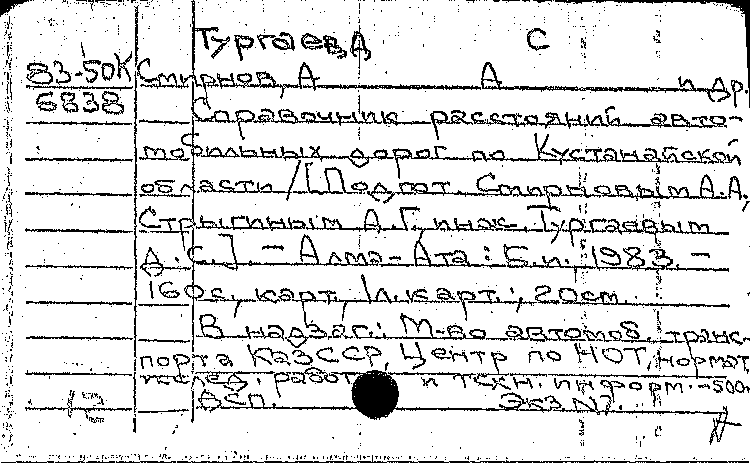 Тургаев, Д С
83-50К Смирнов, А А и др.
6838 Справочник расстояний авто-
мобильных дорог по Кустанайской
области /[Подгот. Смирновым А.А.,
Стрыгиным А.Г., инж. Тургаевым
Д.С.]. - Алма-Ата : Б.и. 1983. -
160с., карт., 1л. карт.; 20см.
В надзаг.: М-во автомоб. транс-
порта КазССР, Центр по НОТ, нормат.
исслед. работ и техн. информ. -500к
ДСП. Экз N7.